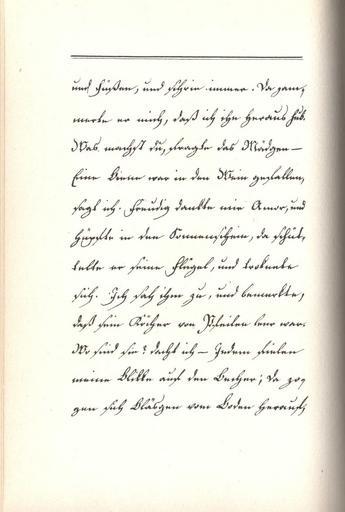 und Füßen, und schrie immer. Da jam,
merte er mich, daß ich ihn heraus hub.
Was machst du, fragte das Mädgen—
Eine Biene war in den Wein gefallen,
sagt ich. Freudig dankte mir Amor, und
hüpfte in den Sonnenschein, da schüt,
telte er seine Flügel, und troknete
sich. Ich sah ihm zu, und bemerkte,
daß sein Köcher von Pfeilen leer war.
Wo sind sie? dacht ich— Indem fielen
meine Blikke auf den Becher; da zo,
gen sich Bläsgen vom Boden herauf,